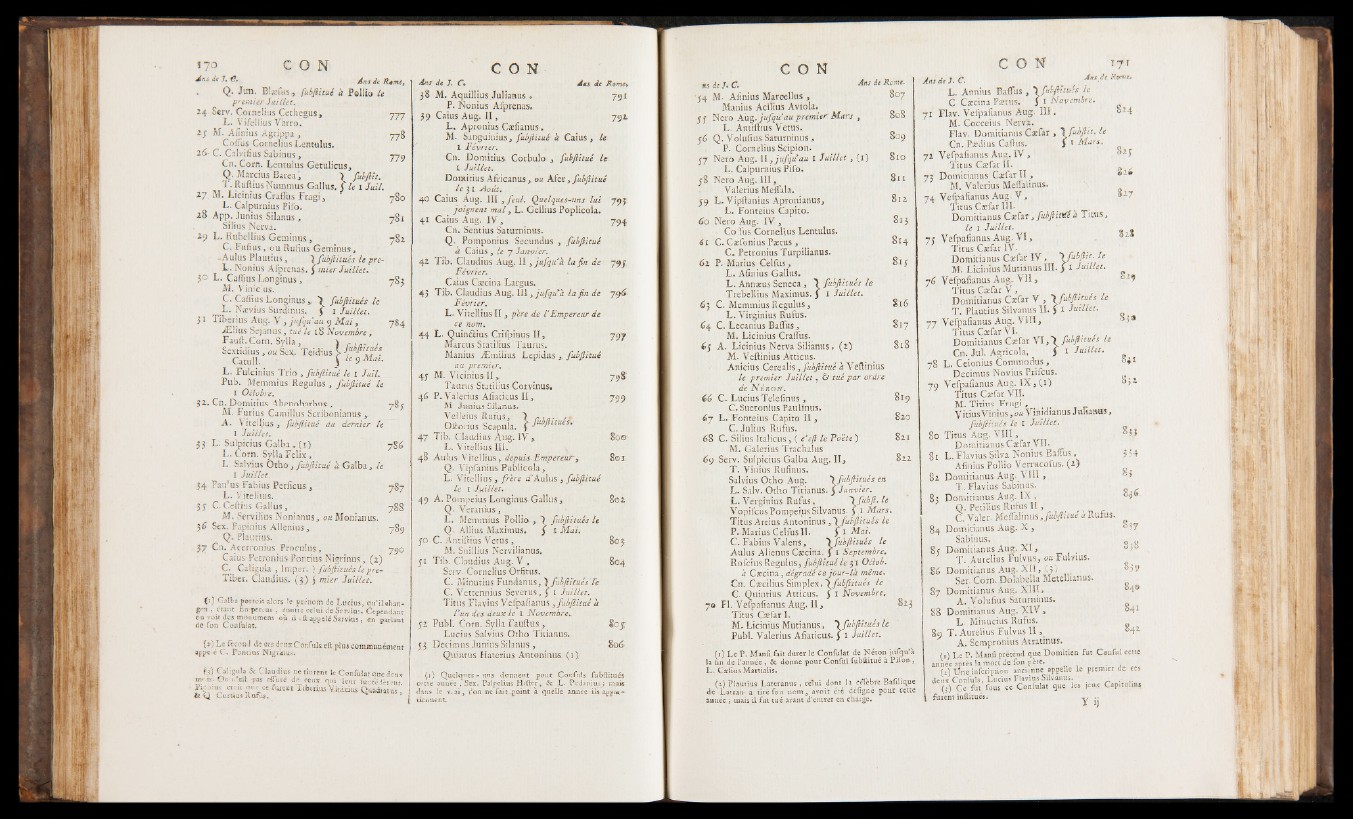 170 CON
Ans de J. C. Ans de Rome.
Q. Jun. Blæsus, substitué à Pollio le
premier Juillet.
24 Serv. Cornelius Cethegus, 777
L. Visellius Varro.
25 M. Asinius Agrippa, 778
Cossus Cornelius Lentulus.
26 C. Calvisius Sabinus, 779
Cn. Corn. Lentulus Getulicus,
Q. Marcius Barea, } substit.
T. Rustius Nummus Gallus. } le 1 Juil.
27 M. Licinius Crassus Frugi, 780
L. Calpurnius Piso.
28 App. Junius Silanus, 781
Silius Nerva.
29 L. Rubellius Geminus, 782
C. Fusius, ou Rufius Geminus,
Aulus Plautius, } substitués le pre-
L. Nonius Asprenas. } mier Juillet.
30 L. Cassius Longinus, 783
M. Vinicius.
C. Cassius Longinus, } substitués le
L. Nævius Surdinus. } 1 Juillet.
31 Tiberius Aug. V, jusqu'au 9 Mai, 784
Ælius Sejanus, tué le 18 Novembre,
Faust. Corn. Sylla, } substitués
Sextidius, ou Sex. Teidius } le 9 Mai.
Catull.
L. Fulcinius Trio, substitué le 1 Juil.
Pub. Memmius Regulus, substitué le
1 Octobre.
32 Cn. Domitius Ahenobarbus, 785
M. Furius Camillus Scribonianus,
A. Vitellius, substitué au dernier le
1 Juillet.
33 L. Sulpicius Galba, (1) 786
L. Corn. Sylla Felix,
L. Salvius Otho, substitué à Galba, le
1 Juillet.
34 Paulus Fabius Persicus, 787
L. Vitellius.
35 C. Cestius Gallus, 788
M. Servilius Nonianus, ou Monianus.
36 Sex. Papinius Allenius, 789
Q. Plautius.
37 Cn. Acerronius Proculus, 790
Caius Petronius Pontius Nigrinus, (2)
C. Caligula, Imper. } substitués le pre-
Tiber. Claudius. (3) } mier Juillet.
(1) Galba portoit alors le prénom de Lucius, qu'il chan-
gea, étant Empereur, contre celui de Servius. Cependant
on voit des monumens où il est appelé Servius, en parlant
de son Consulat.
(2) Le second de ces deux Consuls est plus communément
appelé C. Pontius Nigrinus.
(3) Caligula & Claudius ne tinrent le Consulat que deux
& Q. Curtius Rufus.
CON
Ans de J. C. Ans de Rome.
38 M. Aquillius Julianus, 791
P. Nonius Asprenas.
39 Caius Aug. II, 792
L. Apronius Cæsianus.
M. Sanguinius, substitué à Caius, le
1 Février.
Cn. Domitius Corbulo, substitué le
1 Juillet.
Domitius Africanus, ou Afer, substitué
le 31 Août.
40 Caius Aug. III, seul. Quelques-uns lui 793
joignent mal, L. Gellius Poplicola.
41 Caius Aug. IV, 794
Cn. Sentius Saturninus.
Q. Pomponius Secundus, substitué
à Caius, le 7 Janvier.
42 Tib. Claudius Aug. II, jusqu'à la fin de 795
Février.
Caius Cæcina Largus.
43 Tib. Claudius Aug. III, jusqu'à la fin de 796
Février.
L. Vitellius II, père de l'Empereur de
ce nom.
44 L. Quinctius Crispinus II, 797
Marcus Statilius Taurus.
Manius Æmilius Lepidus, substitué
au premier.
45 M. Vicinius II, 798
Taurus Statilius Corvinus.
46 P. Valerius Asiaticus II, 799
M. Junius Silanus.
Velleius Rufus, } substitués.
Ostorius Scapula. }
47 Tib. Claudius Aug. IV, 800
L. Vitellius III.
48 Aulus Vitellius, depuis Empereur, 801
Q. Vipsanius Publicola,
L. Vitellius, frère d'Aulus, substitué
le 1 Juillet.
49 A. Pompeius Longinus Gallus, 802
Q. Veranius,
L. Memmius Pollio, } substitués le
Q. Allius Maximus. } 1 Mai.
50 C. Antistius Vetus, 803
M. Suillius Nervilianus.
51 Tib. Claudius Aug. V, 804
Serv. Cornelius Orfitus.
C. Minutius Fundanus, } substitués le
C. Vettennius Severus, } 1 Juillet.
Titus Flavius Vespasianus, substitué à
l'un des deux le 1 Novembre.
52 Publ. Corn. Sylla Faustus, 805
Lucius Salvius Otho Titianus.
53 Decimus Junius Silanus, 806
Quintus Haterius Antoninus (1)
(1) Quelques-uns donnent pour Consuls substitués
cette année, Sex. Palpelius Hister, & L. Pedanius; mais
dans le vrai, l'on ne sait point à quelle année ils appar-
tiennent.
CON
Ans de J. C. Ans de Rome.
54 M. Asinius Marcellus, 807
Manius Acilius Aviola.
55 Nero Aug. jusqu'au premier Mars, 808
L. Antistius Vetus.
56 Q. Volusius Saturninus, 809
P. Cornelius Scipion.
57 Nero Aug. II, jusqu'au 1 Juillet, (1) 810
L. Calpurnius Piso.
58 Nero Aug. III, 811
Valerius Messala.
59 L. Vipstanius Apronianus, 812
L. Fonteius Capito.
60 Nero Aug. IV, 813
Cossus Cornelius Lentulus.
61 C. Cæsonius Pætus, 814
C. Petronius Turpilianus.
62 P. Marius Celsus, 815
L. Asinius Gallus.
L. Annæus Seneca, } substitués le
Trebellius Maximus. } 1 Juillet.
63 C. Memmius Regulus, 816
L. Virginius Rufus.
64 C. Lecanius Bassus, 817
M. Licinius Crassus.
65 A. Licinius Nerva Silianus, (2) 818
M. Vestinius Atticus.
Anicius Cerealis, substitué à Vestinius
le premier Juillet, & tué par ordre
de NÉRON.
66 C. Lucius Telesinus, 819
C. Suetonius Paulinus.
67 L. Fonteius Capito II, 820
C. Julius Rufus.
68 C. Silius Italicus, (c'est le Poëte) 821
M. Galerius Trachalus
69 Serv. Sulpicius Galba Aug. II, 822
T. Vinius Rufinus.
Salvius Otho Aug. } substitués en
L. Salv. Otho Titianus. } Janvier.
L. Verginius Rufus, } subst. le
Vopiscus Pompeius Silvanus. } 1 Mars.
Titus Arrius Antoninus, } substitués le
P. Marius Celsus II. } 1 Mai.
C. Fabius Valens, } substitués le
Aulus Alienus Cæcina. } 1 Septembre.
Roscius Regulus, substitué le 31 Octob.
à Cæcina, dégradé ce jour-là même.
Cn. Cæcilius Simplex, } substitués le
C. Quintius Atticus. } 1 Novembre.
70 Fl. Vespasianus Aug. II, 823
Titus Cæsar I.
M. Licinius Mutianus, } substitués le
Publ. Valerius Asiaticus. } 1 Juillet.
(1) Le P. Mansi fait durer le Consulat de Néron jusqu'à
la fin de l'année, & donne pour Consul substitué à Pison,
L. Cæsius Martialis.
(2) Plautius Lateranus, celui dont la célèbre Basilique
de Latran a tiré son nom, avoit été désigné pour cette
année; mais il fut tué avant d'entrer en charge.
CON 171
Ans de J. C. Ans de Rome.
L. Annius Bassus, } substitués le
C. Cæcina Pætus. } 1 Novembre.
71 Flav. Vespasianus Aug. III, 824
M. Cocceius Nerva.
Flav. Domitianus Cæsar, } substit. le
Cn. Pædius Castus. } 1 Mars.
72 Vespasianus Aug. IV, 825
Titus Cæsar II.
73 Domitianus Cæsar II, 826
M. Valerius Messalinus.
74 Vespasianus Aug. V, 827
Titus Cæsar III.
Domitianus Cæsar, substitué à Titus,
le 1 Juillet.
75 Vespasianus Aug. VI, 828
Titus Cæsar IV.
Domitianus Cæsar IV, } substit. le
M. Licinius Mutianus III. } 1 Juillet.
76 Vespasianus Aug. VII, 829
Titus Cæsar V,
Domitianus Cæsar V, } substitués le
T. Plautius Silvanus II. } 1 Juillet.
77 Vespasianus Aug. VIII, 830
Titus Cæsar VI.
Domitianus Cæsar VI, } substitués le
Cn. Jul. Agricola, } 1 Juillet.
78 L. Ceionius Commodus, 831
Decimus Novius Priscus.
79 Vespasianus Aug. IX, (1) 832
Titus Cæsar VII.
M. Titius Frugi,
Vitius Vinius, ou Vinidianus Julianus,
substitués le 1 Juillet.
80 Titus Aug. VIII, 833
Domitianus Cæsar VII.
81 L. Flavius Silva Nonius Bassus, 834
Asinius Pollio Verrucosus. (2)
82 Domitianus Aug. VIII, 83
T. Flavius Sabinus.
83 Domitianus Aug. IX, 846
Q. Petilius Rufus II,
C. Valer. Messalinus, substitué à Rufus.
84 Domitianus Aug. X, 837
Sabinus.
85 Domitianus Aug. XI, 838
T. Aurelius Fulvus, ou Fulvius.
86 Domitianus Aug. XII, (3) 839
Ser. Corn. Dolabella Metellianus.
87 Domitianus Aug. XIII, 840
A. Volusius Saturninus.
88 Domitianus Aug. XIV, 841
L. Minucius Rufus.
89 T. Aurelius Fulvus II, 842
A. Sempronius Atratinus.
(1) Le P. Mansi prétend que Domitien fut Consul cette
année après la mort de son père.
(2) Une inscription ancienne appelle le premier de ces
deux Consuls, Lucius Flavius Silvanus.
(3) Ce fut sous ce Consulat que les jeux Capitolins
furent institués.
Y ij